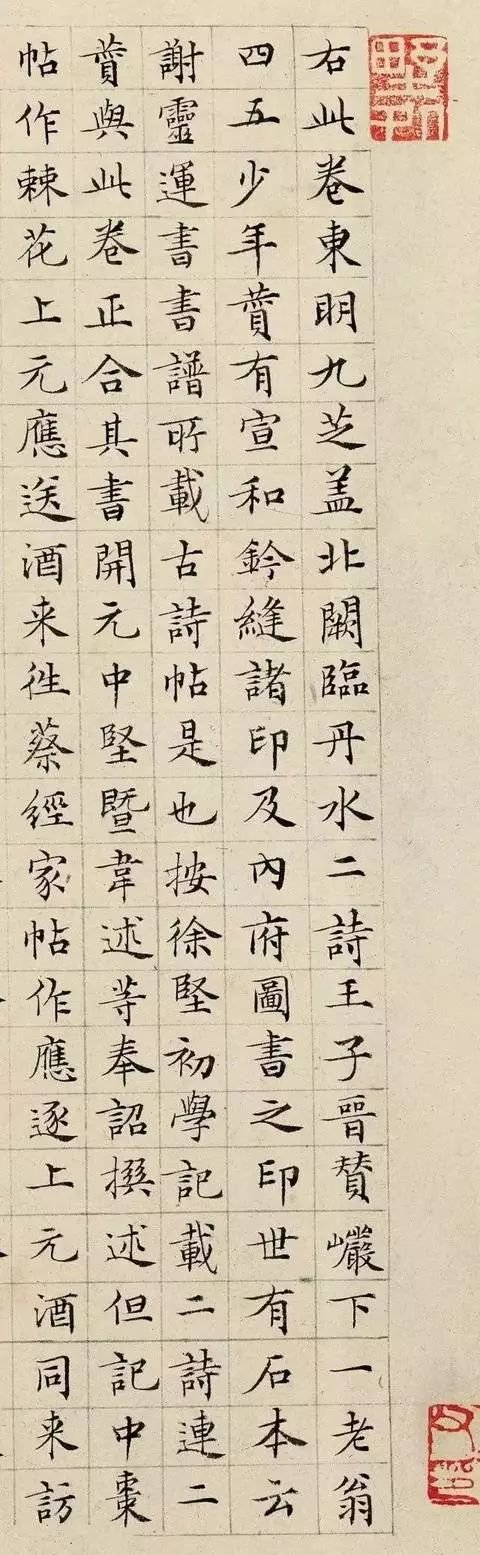 右此卷東明九芝盖北闕臨丹水二詩王子晉賛巖下一老翁
四五少年賛有宣和鈐縫諸印及內府圖書之印世有石本云
謝靈運書書譜所載古詩帖是也按徐堅初學記載二詩連二
賛與此卷正合其書開元中堅暨韋述等奉詔撰述但記中棗
帖作棘花上元應送酒来徃蔡經家帖作應逐上元酒同来訪